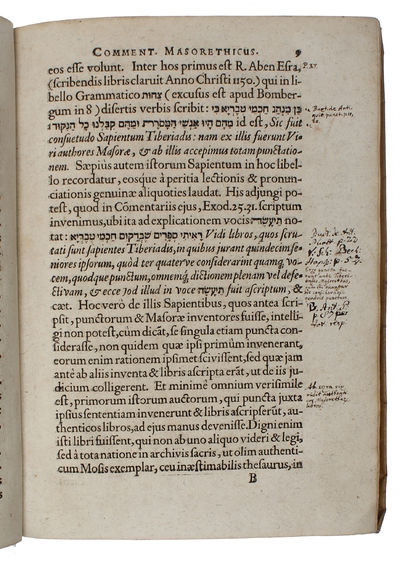 COMMENT. MASORETHICUS. 9
eos esse volunt. Inter hos primus est R. Aben Esra,
(scribendis libris claruit Anno Christi 1150.) qui in li-
bello Grammatico צחות (excusus est apud Bomber-
gum in 8) disertis verbis scribit: כן מנהג חכמי טבריא כי
מהם היו אנשי המסרת ומהם קבלנו כל הנקוד: id est, Sic fuit
consuetudo Sapientum Tiberiadis: nam ex illis fuerunt Vi-
ri authores Masoræ, & ab illis accepimus totam punctatio-
nem. Sæpius autem istorum Sapientum in hoc libel-
lo recordatur, eosque à peritia lectionis & pronun-
ciationis genuinæ aliquoties laudat. His adjungi po-
test, quod in Cōmentariis ejus, Exod. 25.31. scriptum
invenimus, ubi ita ad explicationem vocis תיעשה no-
tat: ראיתי ספרים שבדקום חכמי טבריא Vidi libros, quos scru-
tati sunt sapientes Tiberiadis, in quibus jurant quindecim se-
niores ipsorum, quòd ter quaterve considerarint quamq́; vo-
cem, quodque punctum, omnemq́; dictionem plenam vel defe-
ctivam, & ecce Jod illud in voce תיעשה fuit ascriptum, &
cæt. Hoc verò de illis Sapientibus, quos antea scri-
psit, punctorum & Masoræ inventores fuisse, intelli-
gi non potest, cùm dicāt, se singula etiam puncta con-
siderasse, non quidem quæ ipsi primùm invenerant,
eorum enim rationem ipsimet scivissent, sed quæ jam
antè ab aliis inventa & libris ascripta erāt, ut de iis ju-
dicium colligerent. Et minimè omnium verisimile
est, primorum istorum auctorum, qui puncta juxta
ipsius sententiam invenerunt & libris ascripserūt, au-
thenticos libros, ad ejus manus devenisse. Digni enim
isti libri fuissent, qui non ab uno aliquo videri & legi,
sed à tota natione in archivis sacris, ut olim authenti-
cum Mosis exemplar, ceu inæstimabilis thesaurus, in
B